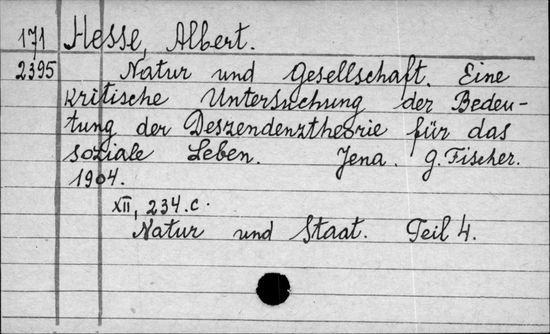 171 Hesse, Albert.
2395 Natur und Gesellschaft. Eine
kritische Untersuchung der Bedeu-
tung der Deszendenztheorie für das
soziale Leben. Jena. G. Fischer.
1904.
XII, 234.c.
Natur und Staat. Teil 4.